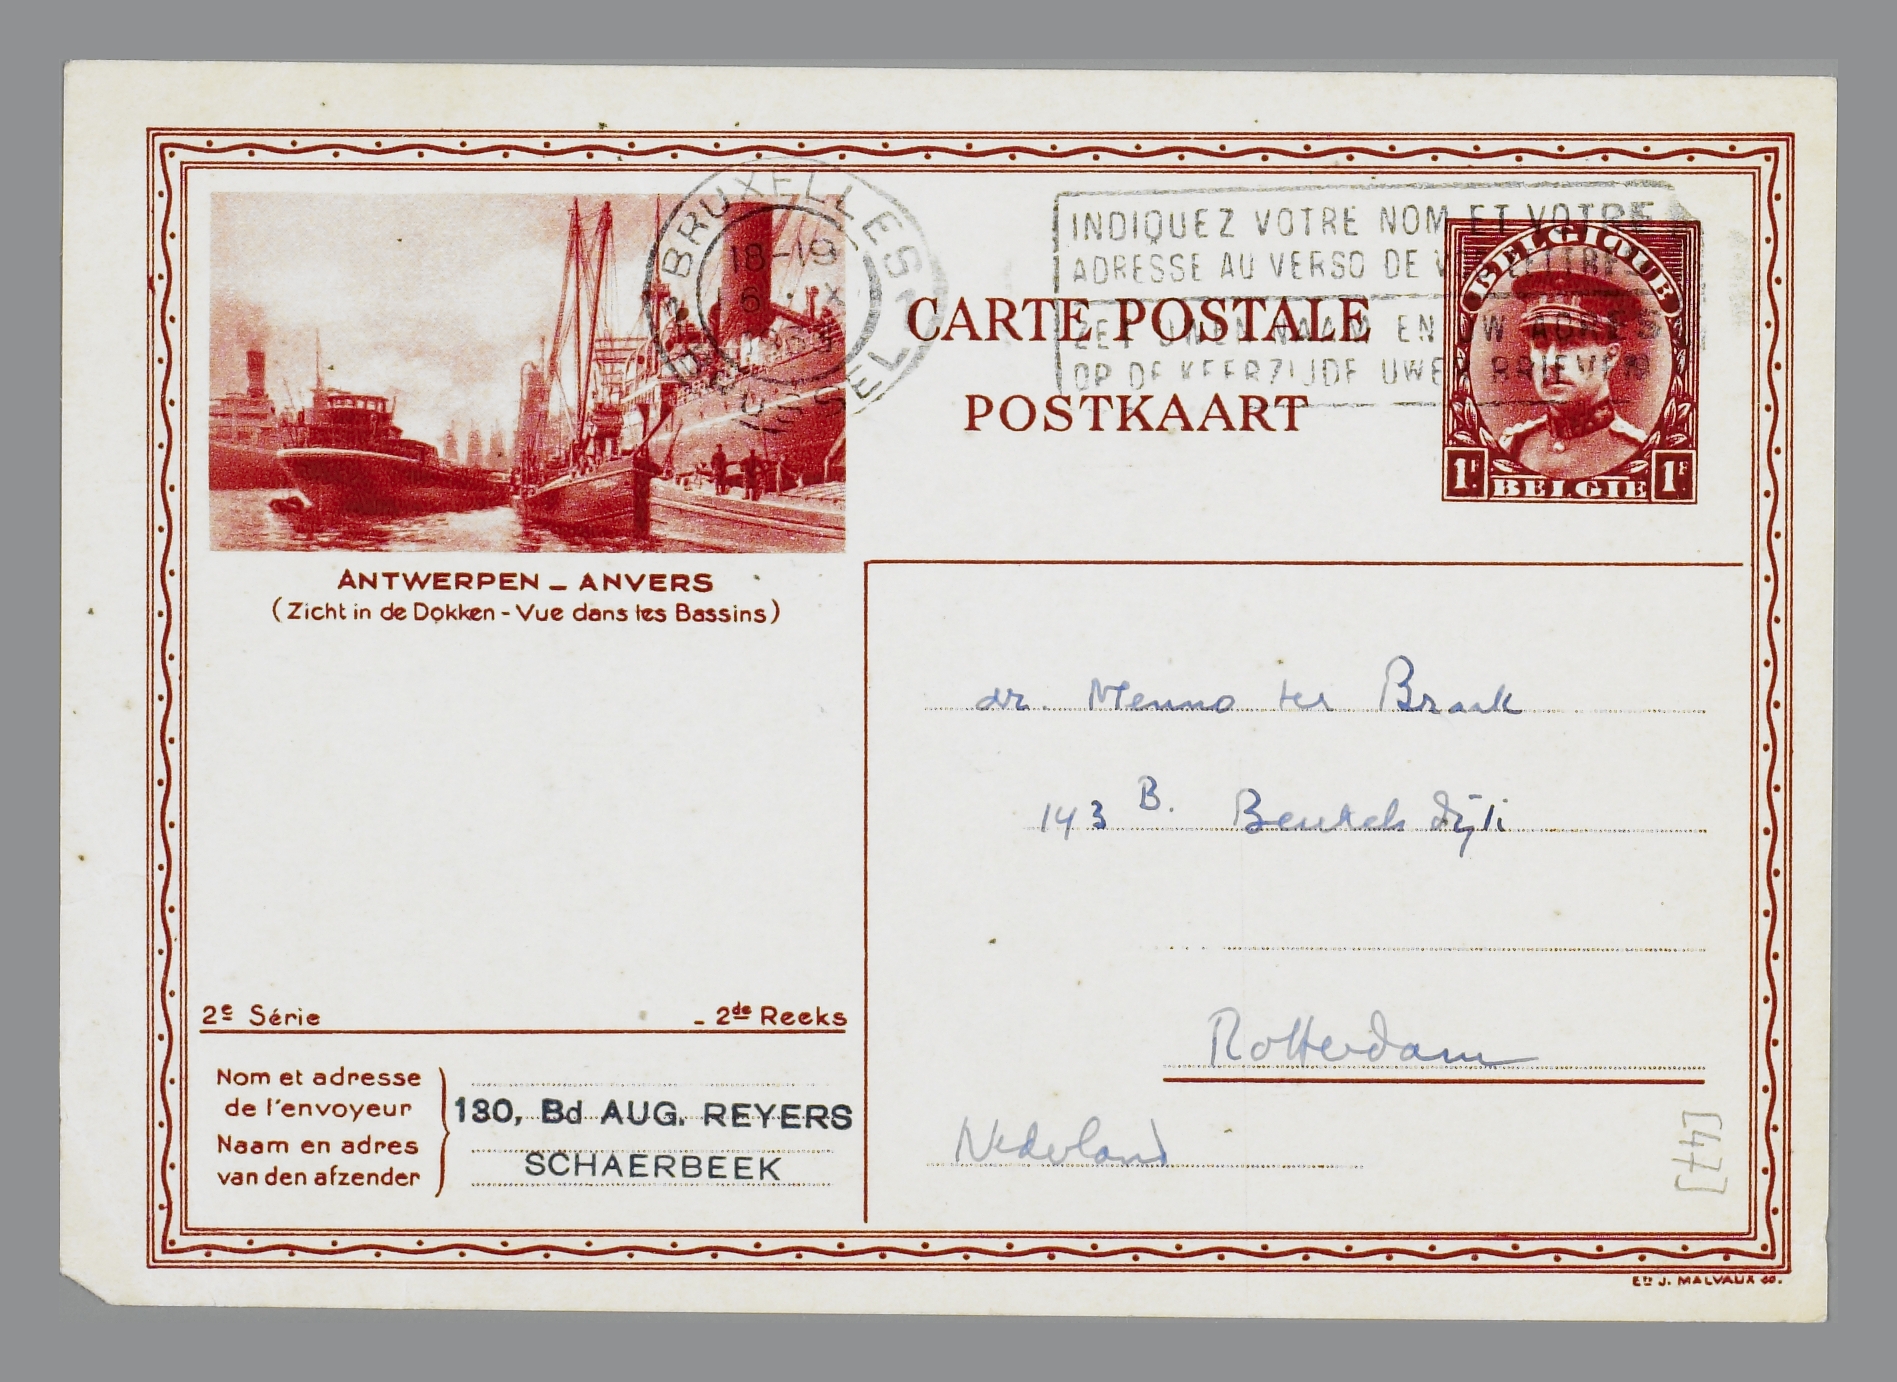 BRUXELLES
18-19
BRUSSEL
INDIQUEZ VOTRE NOM ET VOTRE
ADRESSE AU VERSO DE VOTRE LETTRE
ZET UWEN NAAM EN UW ADRES
OP DE KEERZIJDE UWER BRIEVEN
CARTE POSTALE
POSTKAART
BELGIQUE
1F 1F
BELGIE
ANTWERPEN - ANVERS
(Zicht in de Dokken - Vue dans les Bassins)
dr. Menno ter Braak
143 B. Beukelsdijk
Rotterdam
Nederland
2e Série - 2de Reeks
Nom et adresse
de l'envoyeur
Naam en adres
van den afzender
130, Bd AUG. REYERS
SCHAERBEEK
[47]
Ets J. MALVAUX